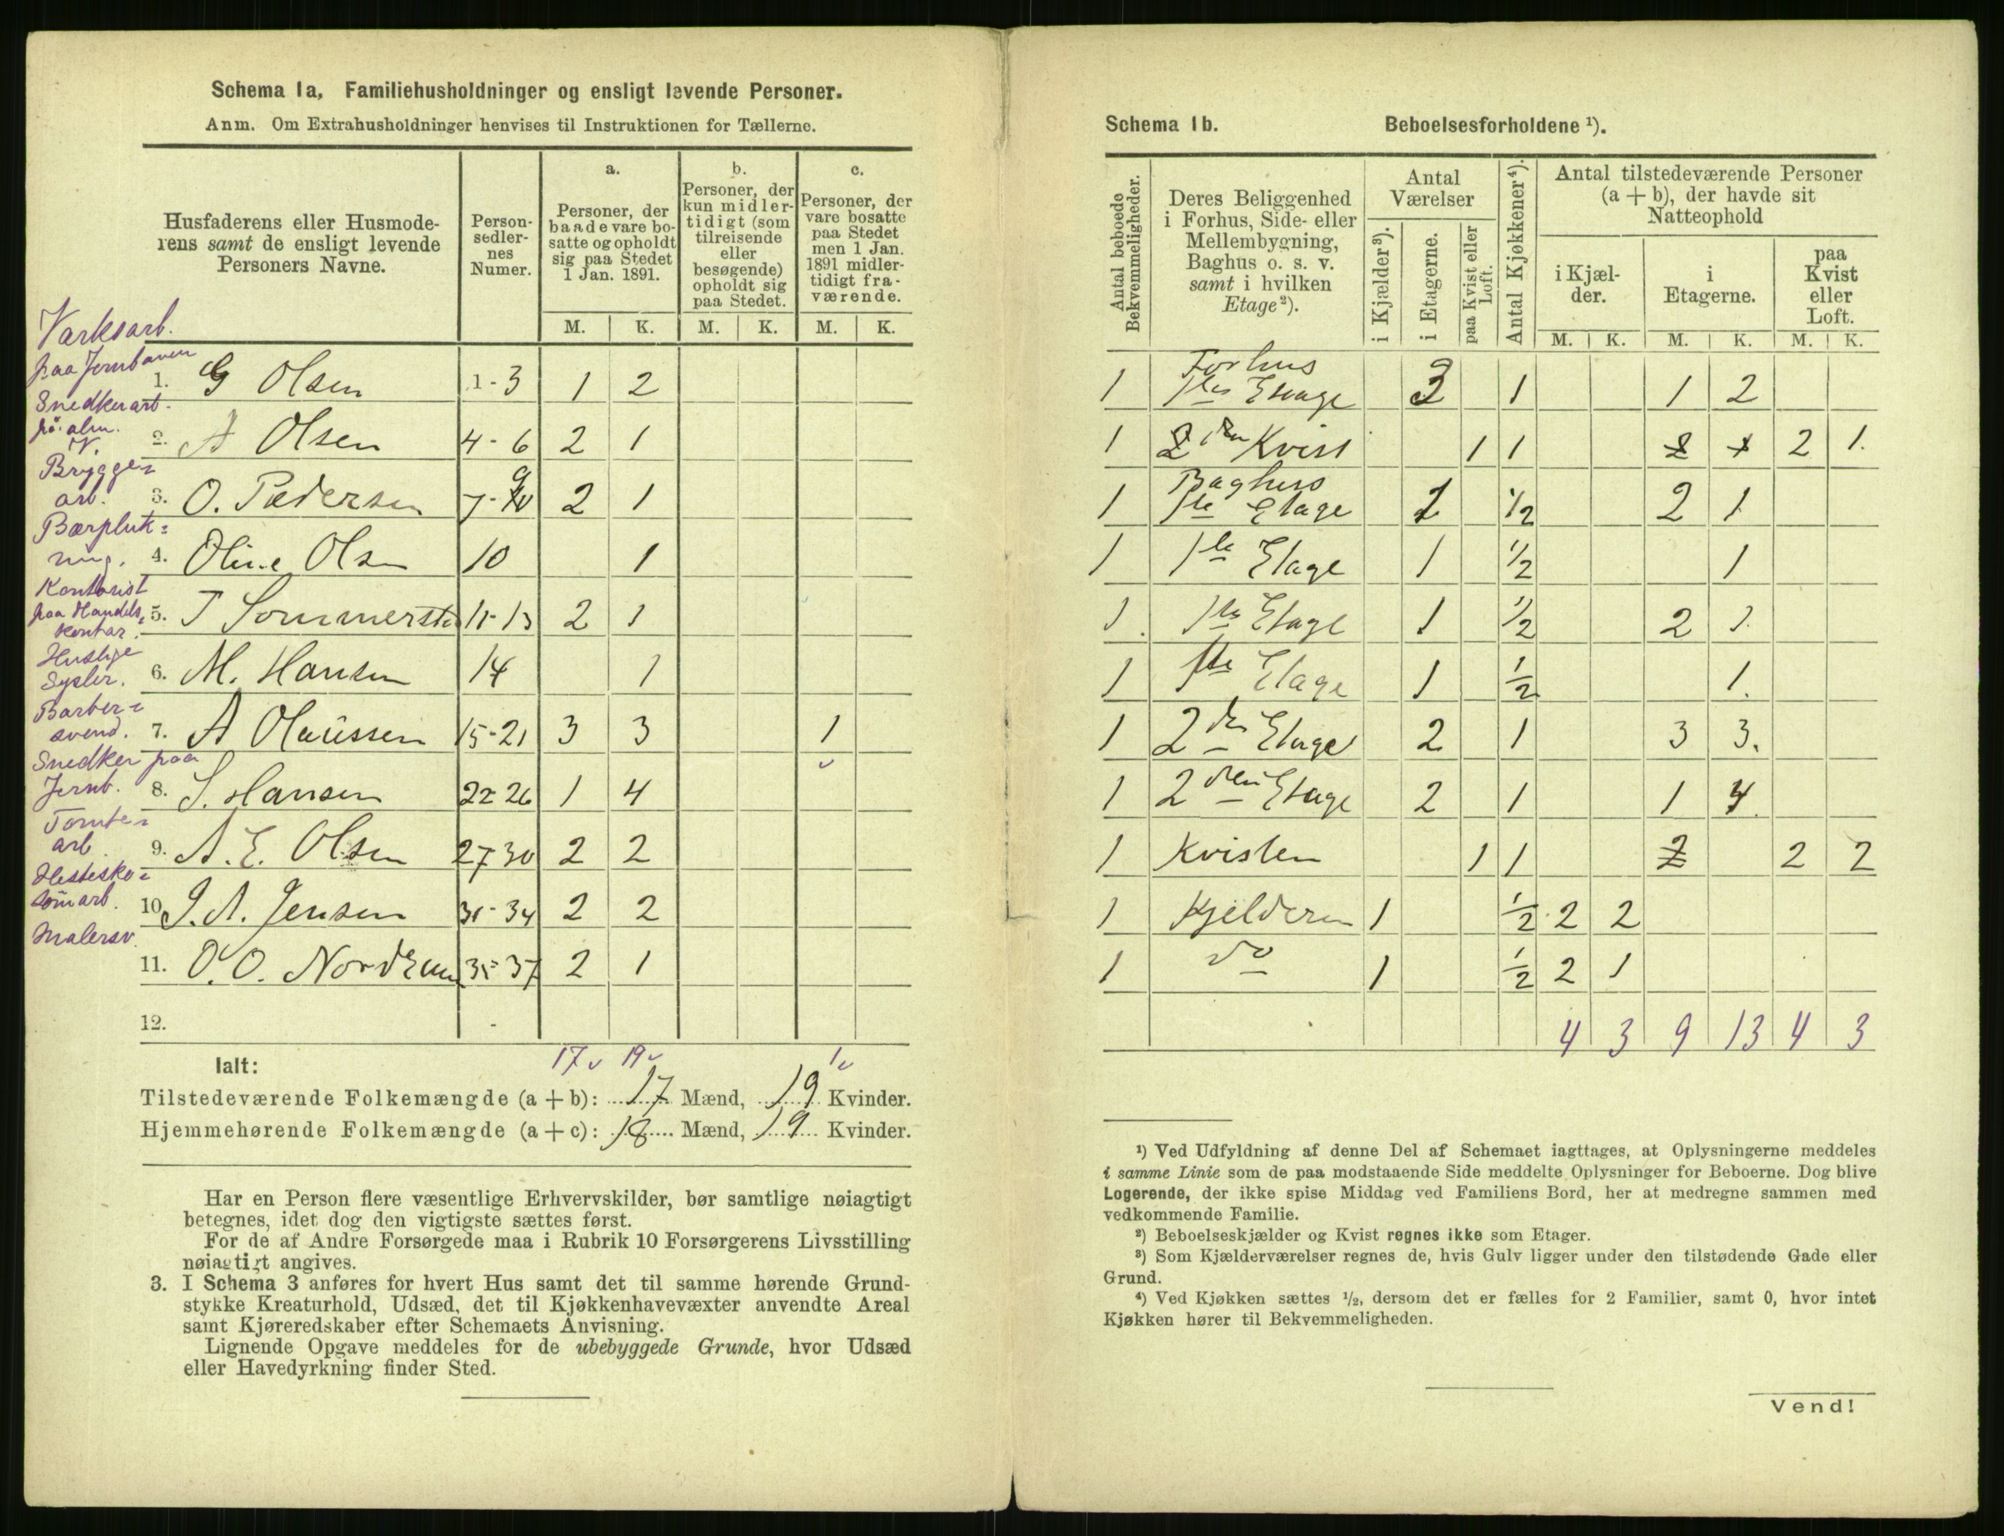 Schema 1a. Familiehusholdninger og ensligt levende Personer.
Anm. Om Extrahusholdninger henvises til Instruktionen for Tællerne.
Husfaderens eller Husmoderens samt de ensligt levende Personers Navne.
Person-sedler-nes Numer.
a. Personer, der baade vare bosatte og opholdt sig paa Stedet 1 Jan. 1891.
b. Personer, der kun midlertidigt (som tilreisende eller besøgende) opholdt sig paa Stedet.
c. Personer, der vare bosatte paa Stedet men 1 Jan. 1891 midlertidigt fraværende.
M. K. M. K. M. K.
Værksarb.
paa Jernbanen
1. G Olsen 1-3 1 2
Snedkerarb.
2. A Olsen 4-6 2 1
Bryggeri
arb. 3. O. Pedersen 7-9 2 1
Bærpluk=
ning. 4. Oline Olsen 10 1
Kontorist
paa Handels.
kontor. 5. T Sommersted 11-13 2 1
Huslige
Sysler. 6. M. Hansen 14 1
Barber=
svend. 7. A Olaussen 15-21 3 3 1
Snedker paa
Jernb. 8. S. Hansen 22-26 1 4
Tomte=
arb. 9. A. E. Olsen 27-30 2 2
Hestesko=
sömarb. 10. J. A. Jensen 31-34 2 2
Malersv.
11. O. O. Nordrum 35-37 2 1
12.
17 19 1
Ialt:
Tilstedeværende Folkemængde (a + b): 17 Mænd, 19 Kvinder.
Hjemmehørende Folkemængde (a + c): 18 Mænd, 19 Kvinder.
Har en Person flere væsentlige Erhvervskilder, bør samtlige nøiagtigt
betegnes, idet dog den vigtigste sættes først.
For de af Andre Forsørgede maa i Rubrik 10 Forsørgerens Livsstilling
nøiagtigt angives.
3. I Schema 3 anføres for hvert Hus samt det til samme hørende Grund-
stykke Kreaturhold, Udsæd, det til Kjøkkenhavevæxter anvendte Areal
samt Kjøreredskaber efter Schemaets Anvisning.
Lignende Opgave meddeles for de ubebyggede Grunde, hvor Udsæd
eller Havedyrkning finder Sted.
Schema 1b. Beboelsesforholdene ¹).
Antal beboede Bekvemmeligheder.
Deres Beliggenhed i Forhus, Side- eller Mellembygning, Baghus o. s. v. samt i hvilken Etage²).
Antal Værelser
i Kjælder³).
i Etagerne.
paa Kvist eller Loft.
Antal Kjøkkener⁴).
Antal tilstedeværende Personer (a + b), der havde sit Natteophold
i Kjælder.
i Etagerne.
paa Kvist eller Loft.
M. K. M. K. M. K.
1 Forhus 1ste Etage 3 1 1 2
1 2den Kvist 1 1 2 1 2 1
1 Baghus 1ste Etage 1 1/2 2 1
1 1ste Etage 1 1/2 1
1 1ste Etage 1 1/2 2 1
1 1ste Etage 1 1/2 1
1 2den Etage 2 1 3 3
1 2den Etage 2 1 1 4
1 Kvisten 1 1 2 2 2
1 Kjelderen 1 1/2 2 2
1 do 1 1/2 2 1
4 3 9 13 4 3
¹) Ved Udfyldning af denne Del af Schemaet iagttages, at Oplysningerne meddeles
i samme Linie som de paa modstaaende Side meddelte Oplysninger for Beboerne. Dog blive
Logerende, der ikke spise Middag ved Familiens Bord, her at medregne sammen med
vedkommende Familie.
²) Beboelseskjælder og Kvist regnes ikke som Etager.
³) Som Kjælderværelser regnes de, hvis Gulv ligger under den tilstødende Gade eller
Grund.
⁴) Ved Kjøkken sættes 1/2, dersom det er fælles for 2 Familier, samt 0, hvor intet
Kjøkken hører til Bekvemmeligheden.
Vend!